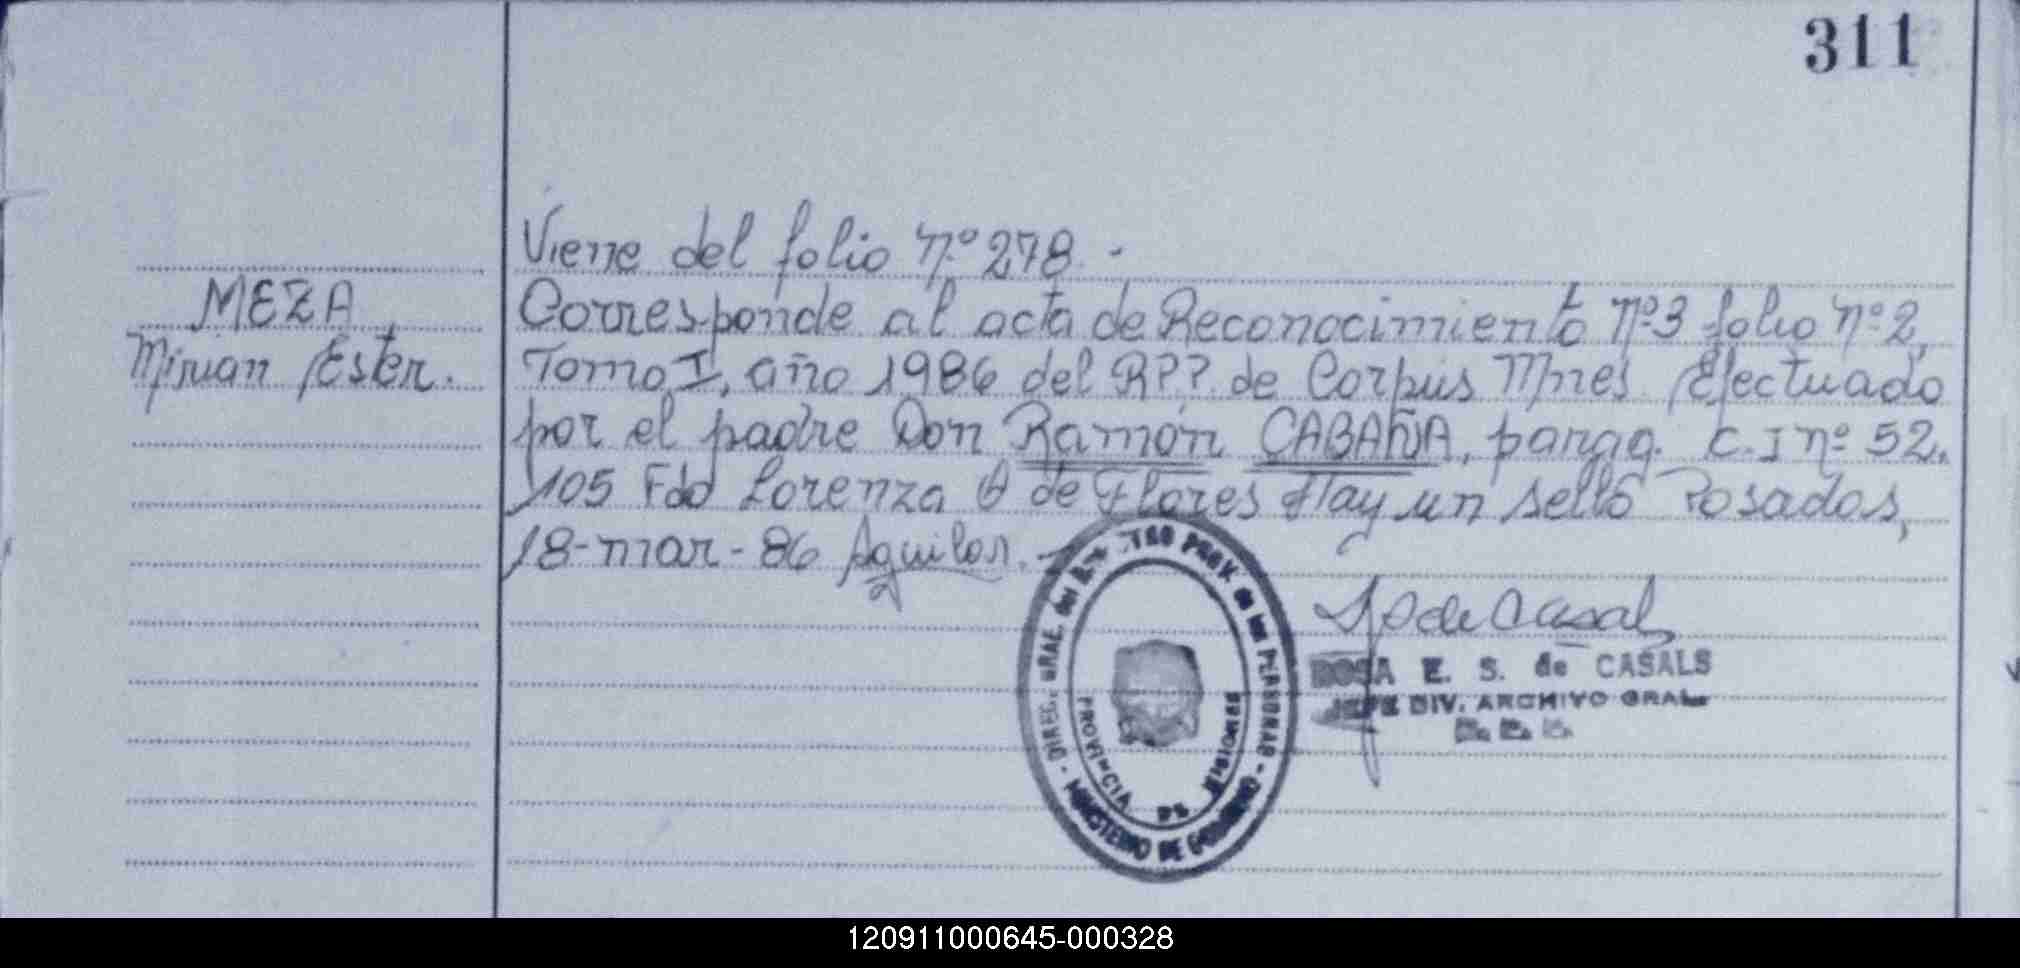 311
Viene del folio Nº 278.-
MEZA
Mirian Ester.
Corresponde al acta de Reconocimiento Nº 3 folio Nº 2,
Tomo I, año 1986 del RPP. de Corpus Mnes. Efectuado
por el padre Don Ramón CABAÑA, parag. C.I nº 52.
105 Fdo Lorenza de Flores Hay un sello Posadas,
18-mar-86 Aguilar.-
DIREC. GRAL. del PROV. de las PERSONAS - MINISTERIO DE GOBIERNO -
PROVINCIA DE MISIONES
de Casals
ROSA E. S. de CASALS
JEFE DIV. ARCHIVO GRAL
120911000645-000328